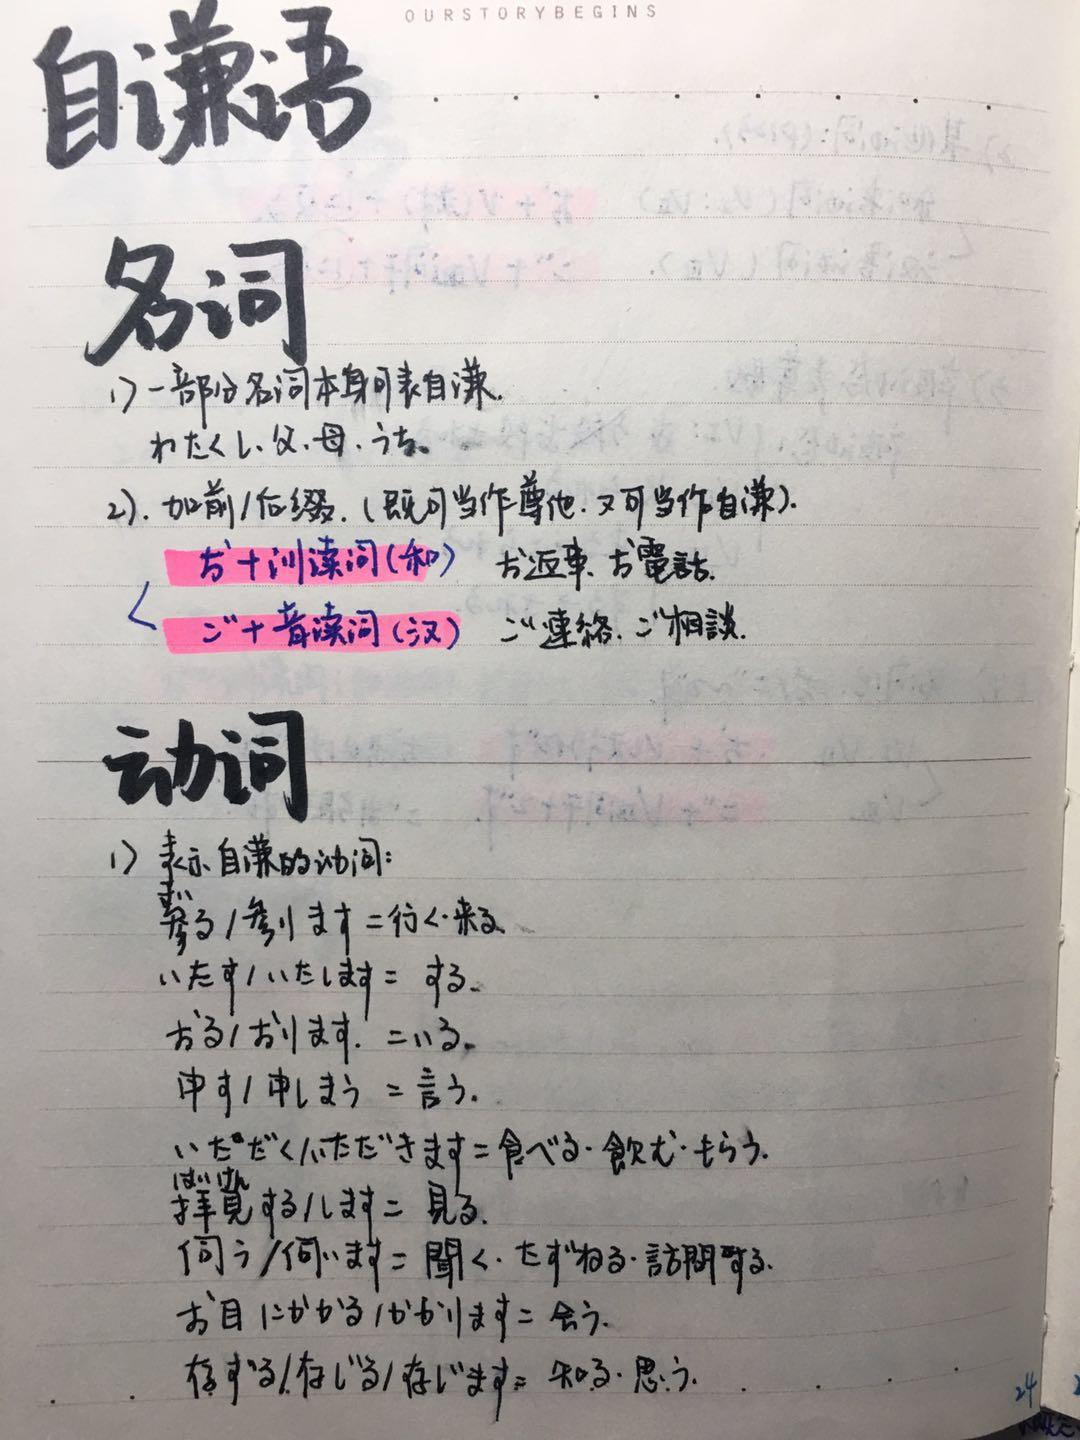 OURSTORYBEGINS
自谦语
名词
1) 一部分名词本身可表自谦.
わたくし、父、母、うち。
2). 加前/后缀. (既可当作尊他. 又可当作自谦).
お+训读词(和) お返事. お電話.
ご+音读词(汉) ご連絡. ご相談.
动词
1) 表示自谦的动词:
まい
参る/参ります=行く·来る.
いたす/いたします= する.
おる/おります. =いる.
申す/申しまう =言う.
いただく/いただきます=食べる·飲む·もらう.
はいけん
拝見する/します= 見る.
伺う/伺います= 聞く·たずねる·訪問する.
お目にかかる/かかります= 会う.
存ずる/存じる/存じます= 知る·思う.
24